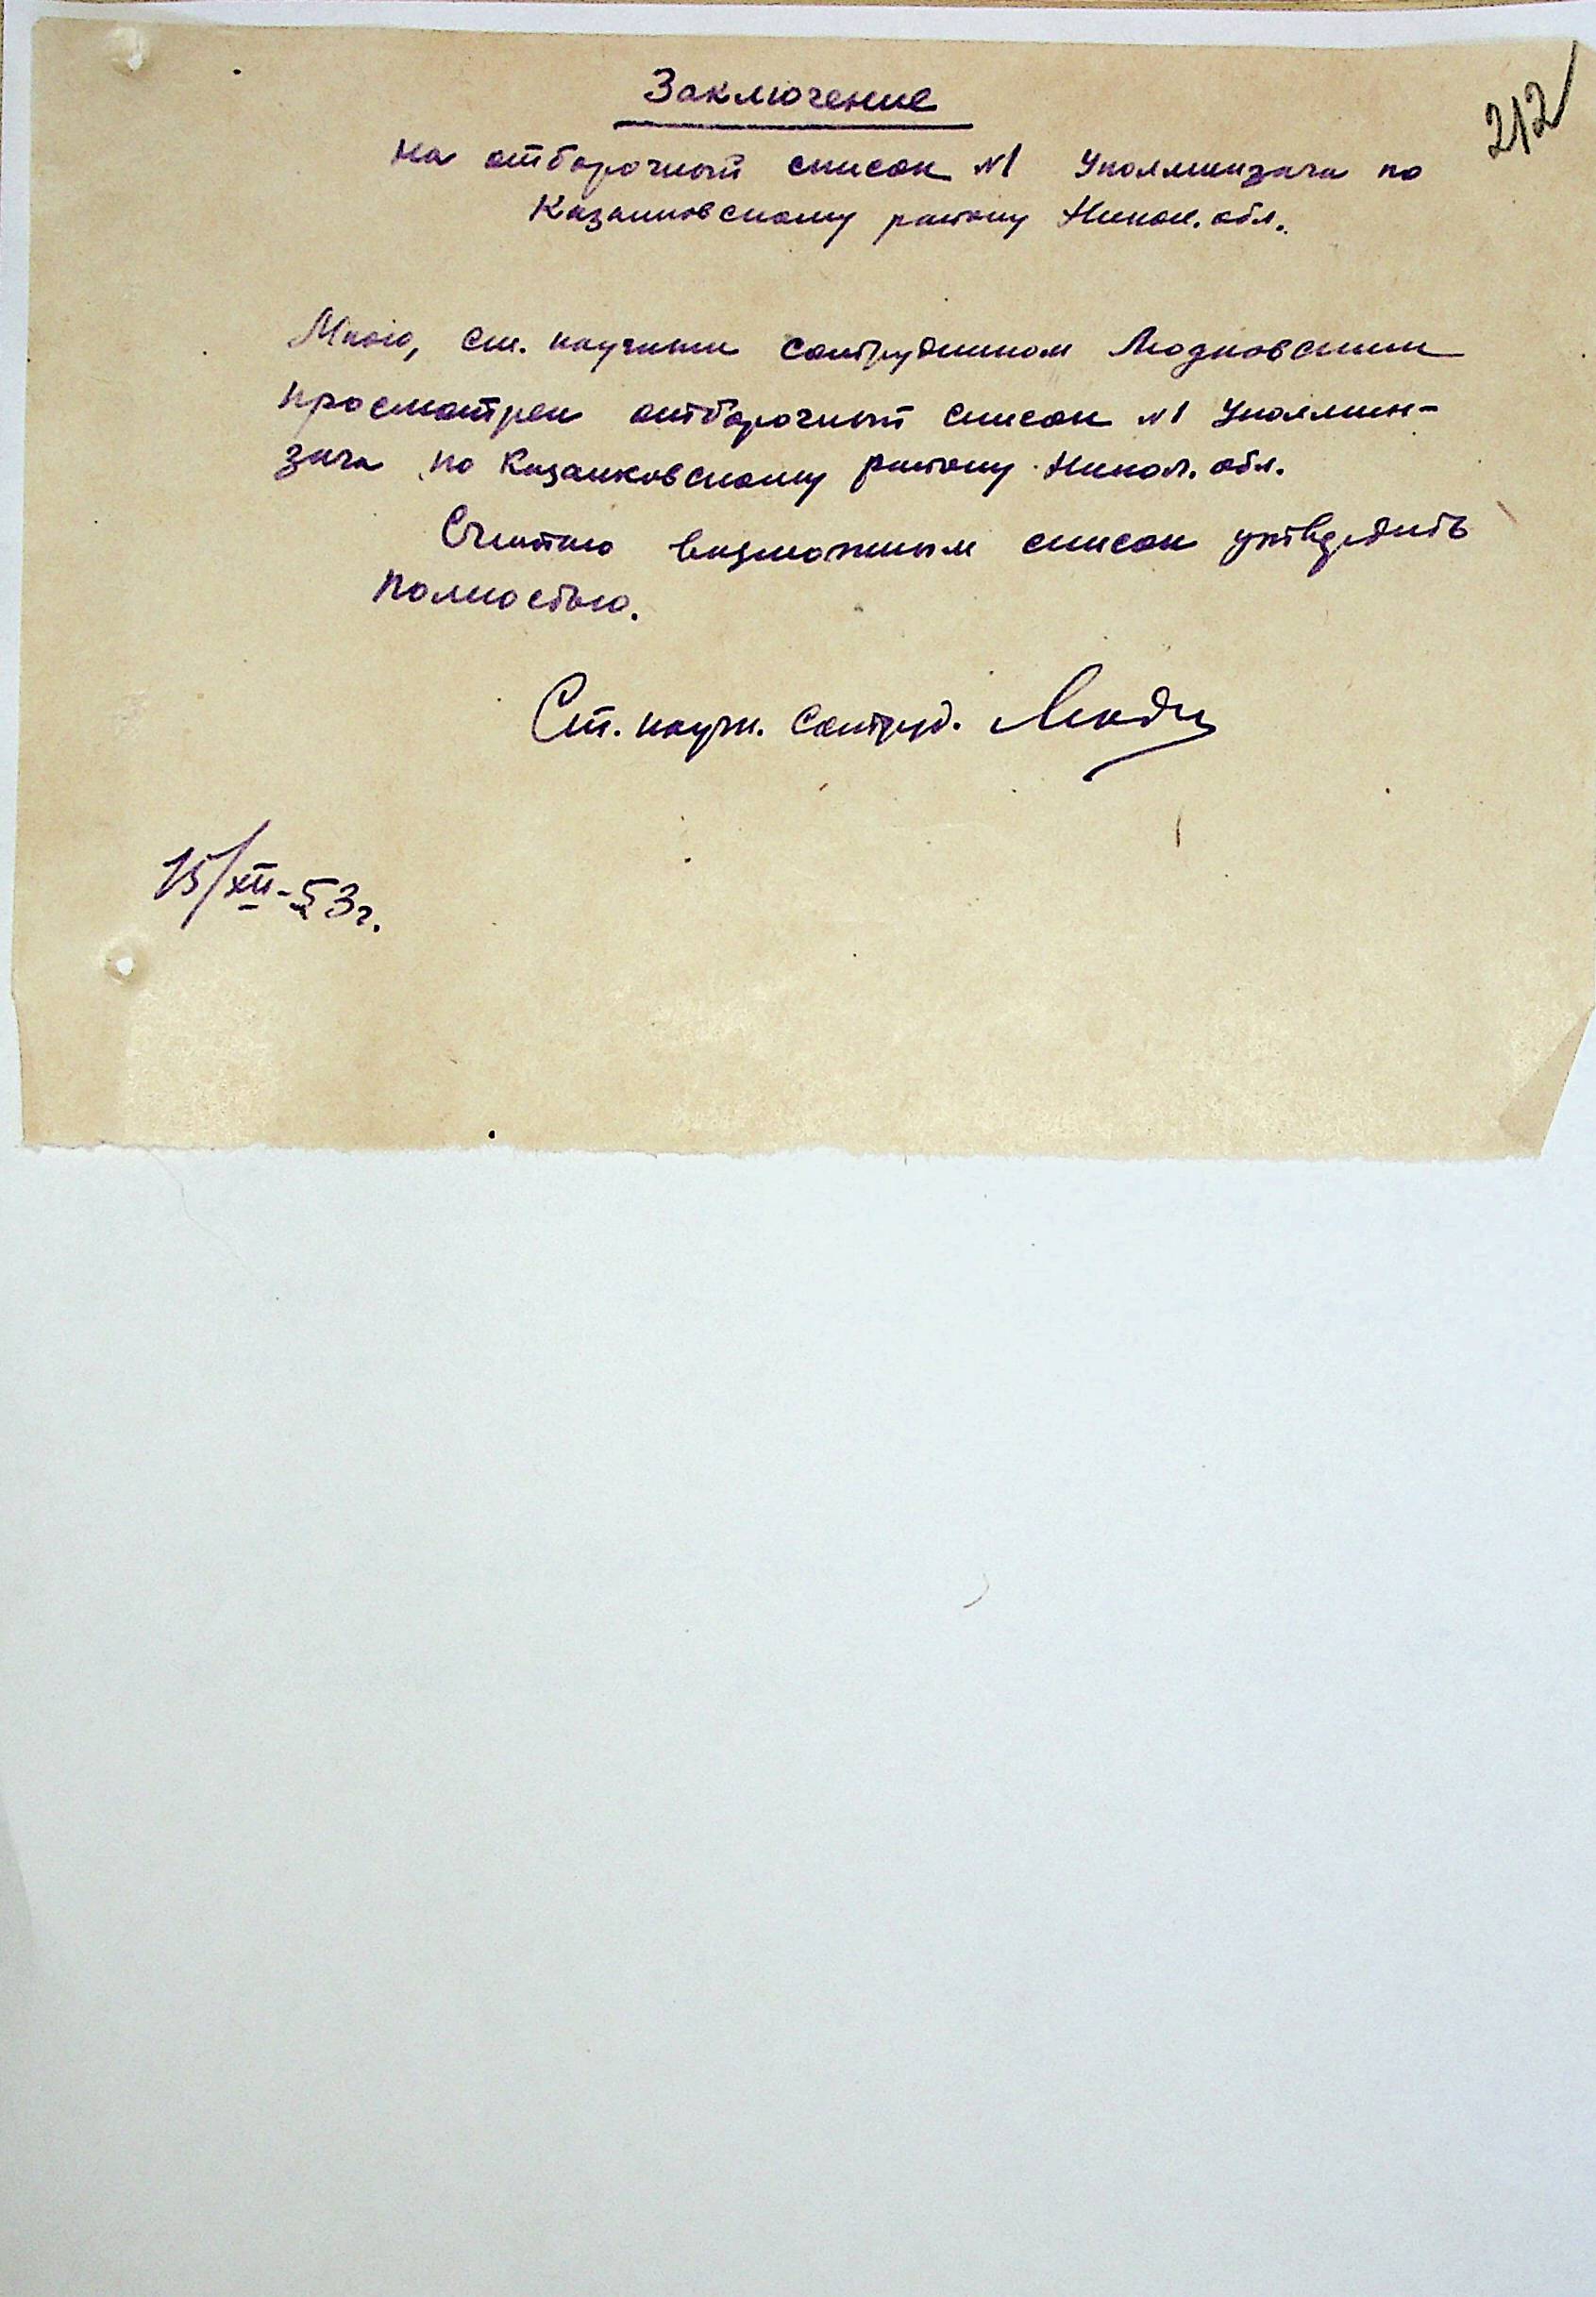 212
Заключение
на отборочный список №1 Уполминзага по
Казанковскому району Никол. обл.
Мною, ст. научным сотрудником Людковским
просмотрен отборочный список №1 Уполмин-
зага по Казанковскому району Никол. обл.
Считаю возможным список утвердить
полностью.
Ст. научн. сотруд.
15/XII-53г.